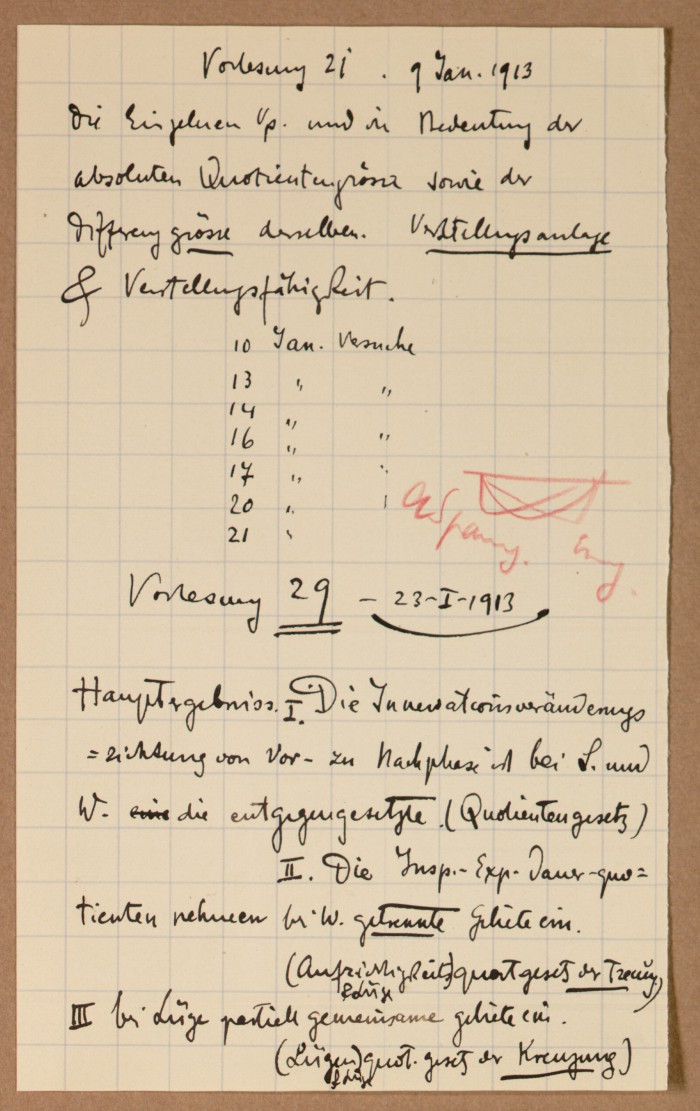 Vorlesung 21 . 9 Jan. 1913
Die Einzelnen Vp. und die Bedeutung der
absoluten Quotientengrösse sowie der
Differenzgrösse derselben. Verstellungsanlage
& Verstellungsfähigkeit.
10 Jan. Versuche
13 " "
14 "
16 " "
17 " "
20 " "
21 "
Vorlesung 29 – 23-I-1913
Hauptergebniss. I. Die Innervationsveränderungs
=richtung von Vor- zu Nachphase ist bei L. und
W. eine die entgegengesetzte. (Quotientengesetz)
II. Die Insp.-Exp-Dauer-quo=
tienten nehmen bei W. getrennte Gebiete ein.
(Aufrichtigkeits)quot gesetz der Trenng)
III bei Lüge partiell gemeinsame gebiete ein.
(Lügen)quot. gesetz der Kreuzung)